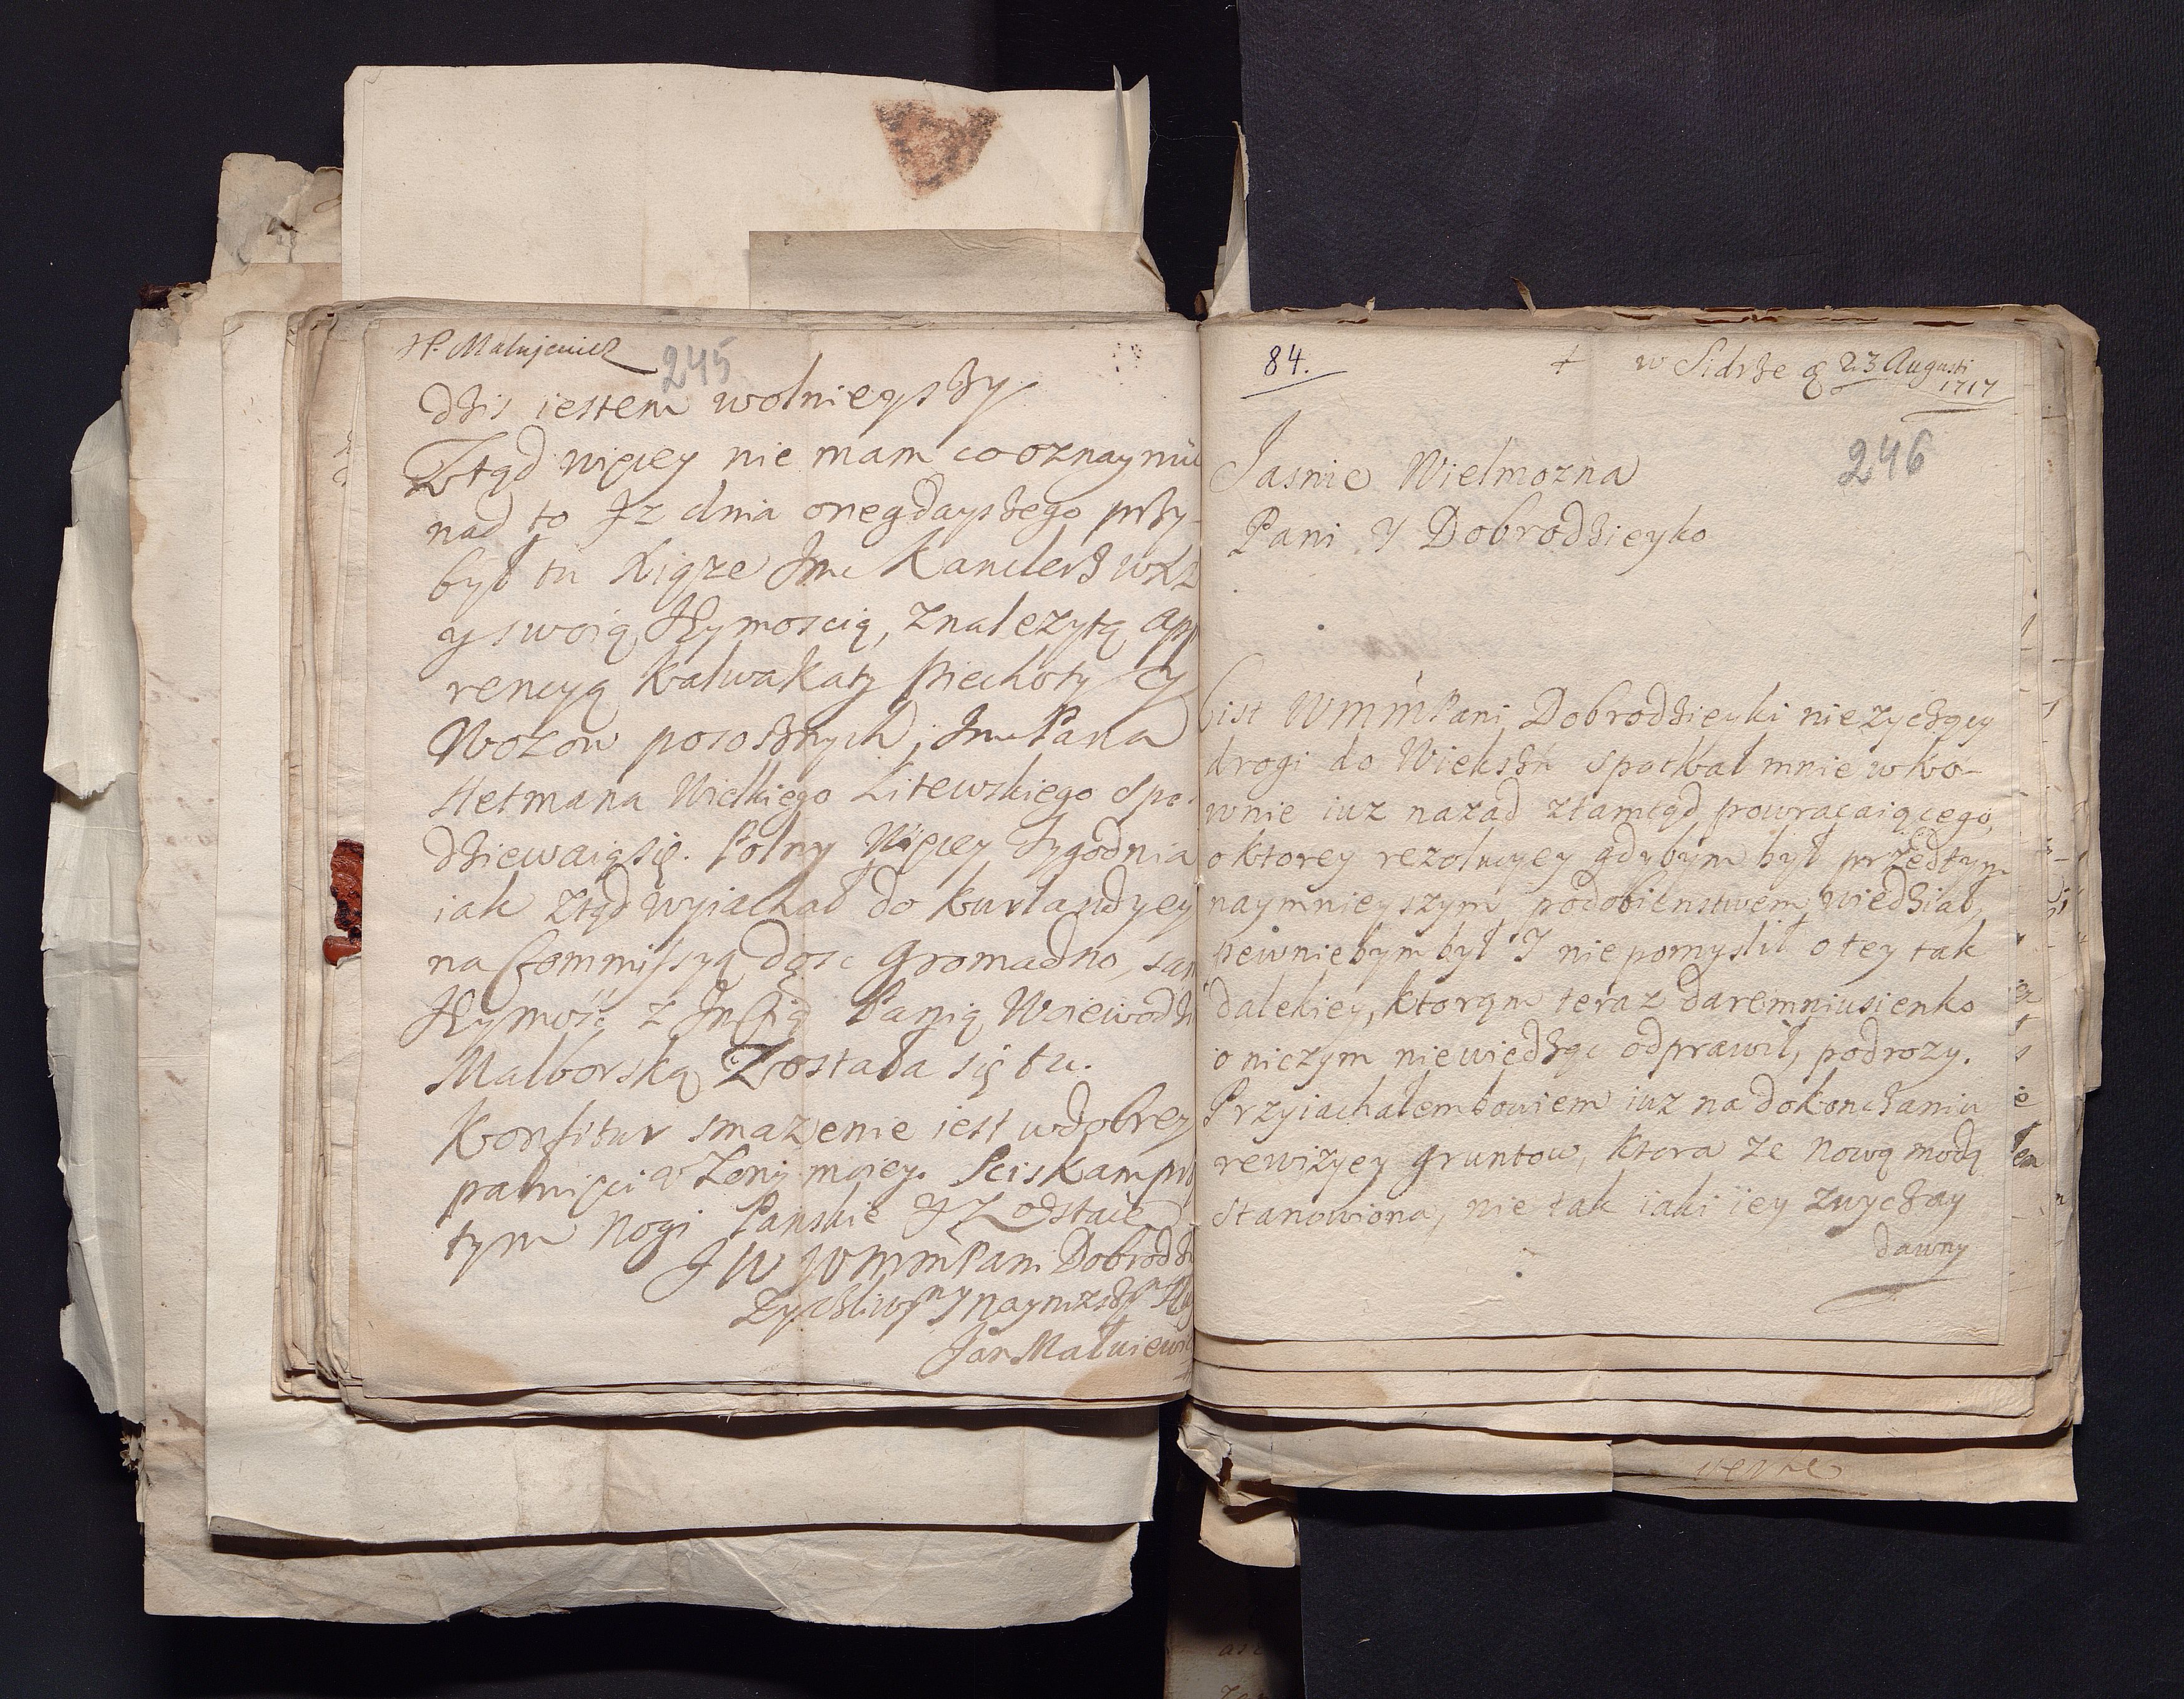 JP. Malujewicz
245
dzis iestem wolnieyszy.
Ztąd więcey nie mam co oznaymic
nad to Jz dnia onegdayszego przy-
był tu Xiąze Jmc Kanclerz WXL
y swoią Jeymoscią, znalezytą app
rencyą kalwakaty piechoty y
Wozow poroszych, Jmc Pana
Hetmana Wielkiego Litewskiego spo
dziewaią się. Polny więcey tygodnia
iak ztąd wyiachał do Kurlandyey
na Commissyą dosc gromadno, sam
Jeymość z Jmcią Panią Woiewodzi
Malborską Została się tu.
Konfitur smazenie iest w dobrey
pamięci u Zony moiey. Sciskam przy
tym nogi Panskie y Zostaie
J W WMM Pani Dobrodzi
Zyczliwym y naynizszym Slug
Jan Małuiewic
84. + w Sidrze 23 Augusti
1717
246
Jasnie Wielmozna
Pani y Dobrodzieyko
List WMM Pani Dobrodzieyki niezyczący
drogi do Wiekszń spotkał mnie w Ko-
wnie iuz nazad ztamtąd powracaiącego,
o ktorey rezolucyey gdybym był przedtym
naymnieyszym podobienstwem wiedział,
pewniebym był J nie pomyslił o tey tak
dalekiey, ktorąm teraz daremniusienko
o niczym niewiedząc odprawił, podrozy.
Przyiachałem bowiem iuz na dokonczaniu
rewizyey gruntow, ktora ze nową modą
stanowiona, nie tak iaki iey zwyczay
dawny